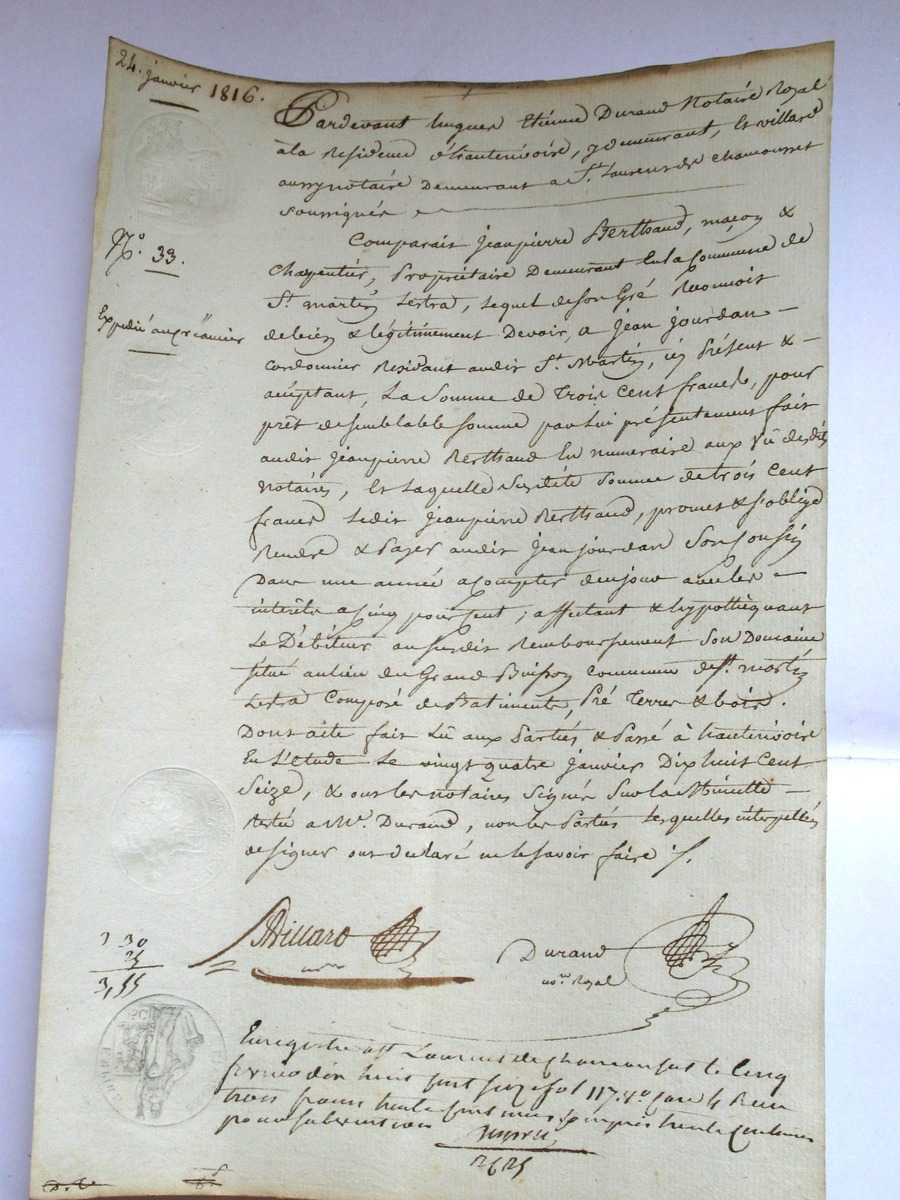 24. janvier 1816.
Pardevant hugues Etienne Durand Notaire Royal
ala Residence d'hauterivoire, y demeurant, Et villard
aussy notaire Demeurant a St. Laurens de chamousset
soussignés
N.o 33.
Comparait Jeanpierre Berthaud, maçon &
Charpentier, Propriétaire Demeurant En la Commune de
St. martin Lestra, Lequel de son Gré Reconnoit
Expedié au créancier
de bien & légitimement Devoir, a Jean jourdan
Cordonnier Residant audit St. Martin, icy Présent &
acceptant, La Somme de Trois Cent francs, pour
prêt de semblable somme par lui présentement fait
audit Jeanpierre Berthaud En numeraire aux vû desdits
Notaires, Et Laquelle susdite Somme de trois Cent
francs Ledit Jeanpierre Berthaud, promet & s'oblige
Rendre & Payer audit Jean Jourdan Son Cousin
Dans une année a Compter de ce jour avec les
interêts a Cinq pour Cent; affectant & hypothèquant
Le Débiteur au susdit Remboursement Son Domaine
situé au lieu du Grand Buisson Commune de St. martin
Lestra Composé de Batiments, Pré Terres & bois.
Dont acte fait Lû aux Parties & Passé à hauterivoire
En L'étude Le vingt quatre janvier Dix huit Cent
Seize, & ont les notaires Signés Sur la Minutte
Restée a Me. Durand, non les Parties Lesquelles interpellées
de signer ont declaré ne le savoir faire ./.
3 30
25
3,55
Villard
nore
Durand
nore Royal
Enregistré a St Laurens de Chamousset le Cinq
fevrier dix huit cent seize fol 117. Vo Case 4 Reçu
trois francs trente Centimes compris trente Centimes
pour subvention